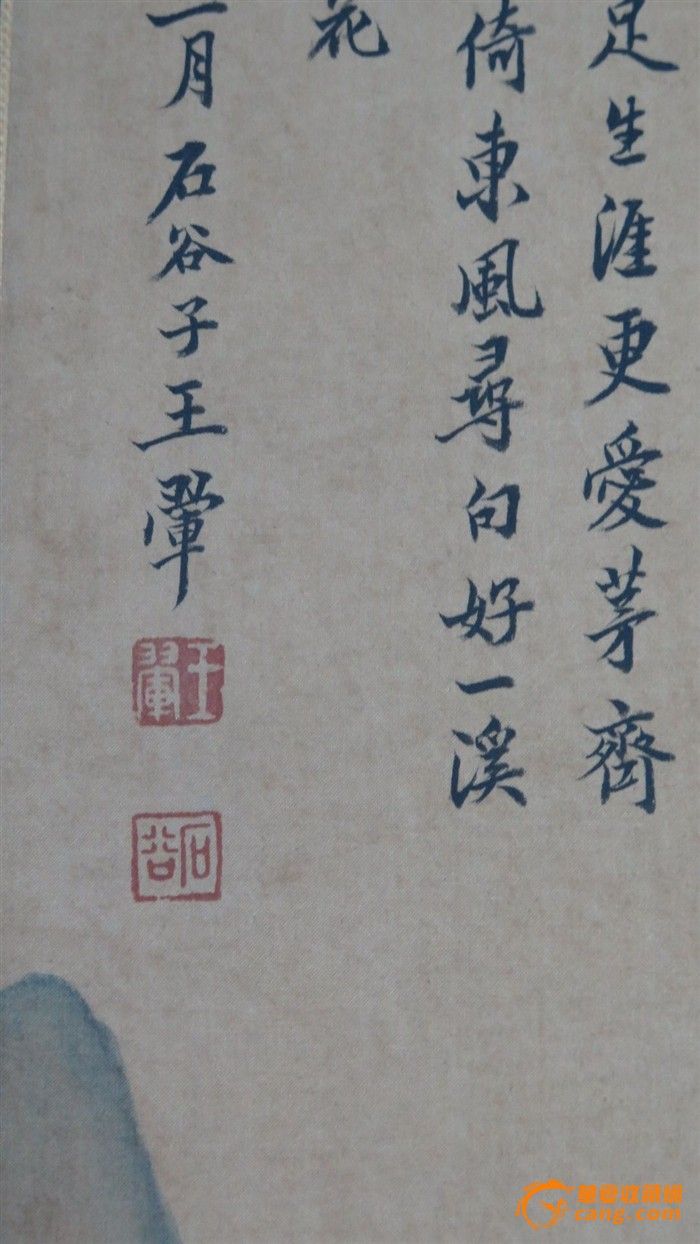 足生涯更愛茅齊
倚東風尋句好一溪
花
一月石谷子王翬
王翬
石谷
cang.com